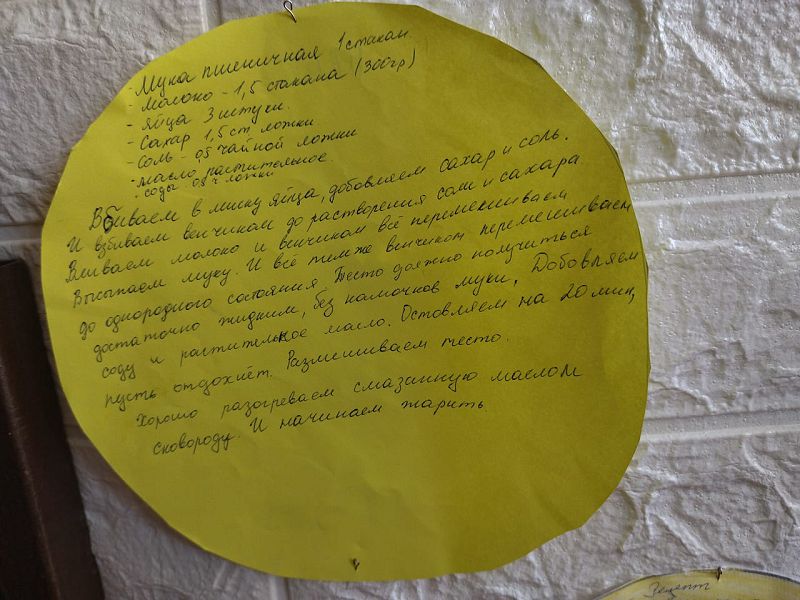 - Мука пшеничная 1 стакан.
- Молоко - 1,5 стакана (300гр)
- Яйца 3 штуки.
- Сахар 1,5 ст ложки
- Соль - 05 чайной ложки
- Масло растительное.
- соды 05 ч ложки
Вбиваем в миску яйца, добовляем сахар и соль.
И взбиваем венчиком до растворения соли и сахара
Вливаем молоко и венчиком всё перемешиваем
Высыпаем муку. И всё темже венчиком перемешиваем
до однородного состояния. Тесто должно получиться
достаточно жидким, без камочков муки. Добовляем
соду и растительное масло. Оставляем на 20 мин,
пусть отдохнёт. Размешиваем тесто.
Хорошо разогреваем смазанную маслом
сковороду. И начинаем жарить.
Рецепт